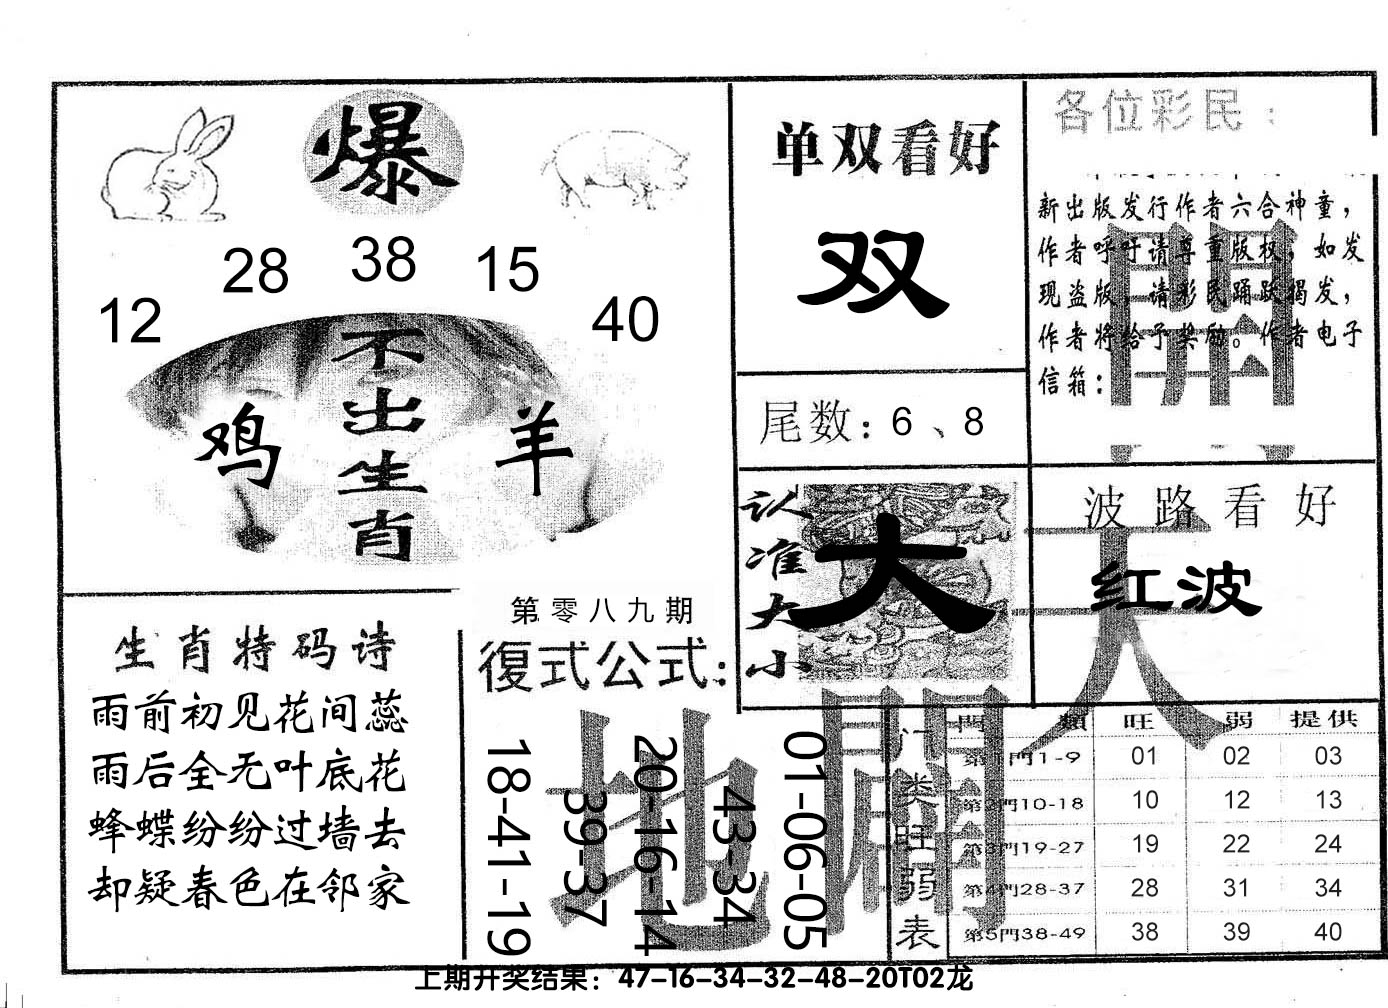 爆
28 38 15
12 40
不出生肖
鸡 羊
生肖特码诗
雨前初见花间蕊
雨后全无叶底花
蜂蝶纷纷过墙去
却疑春色在邻家
第零八九期
復式公式:
18-41-19
39-37
20-16-14
43-34
01-06-05
单双看好
双
尾数: 6、8
认准大小
大
各位彩民:
新出版发行作者六合神童,
作者呼吁请尊重版权,如发
现盗版,请彩民踊跃揭发,
作者将给予奖励。作者电子
信箱:
波路看好
红波
天
地
開
門类旺弱表
門類 旺 弱 提供
第1門1-9 01 02 03
第2門10-18 10 12 13
第3門19-27 19 22 24
第4門28-37 28 31 34
第5門38-49 38 39 40
上期开奖结果: 47-16-34-32-48-20T02龙